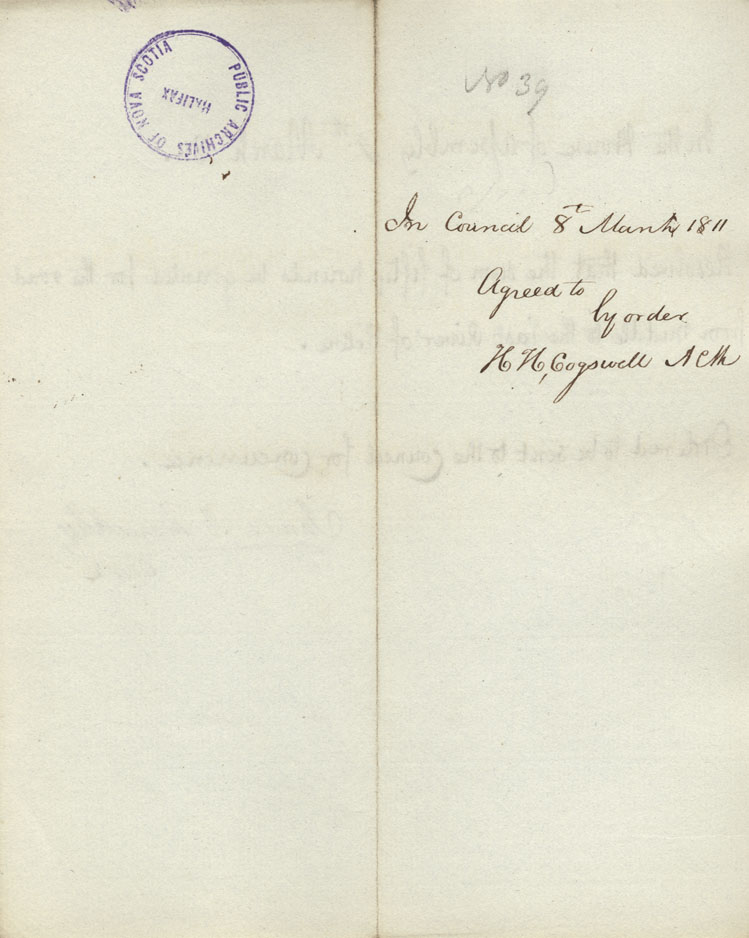 PUBLIC ARCHIVES OF NOVA SCOTIA
HALIFAX
No 39
In Council 8t March 1811
Agreed to
by order
H H Cogswell